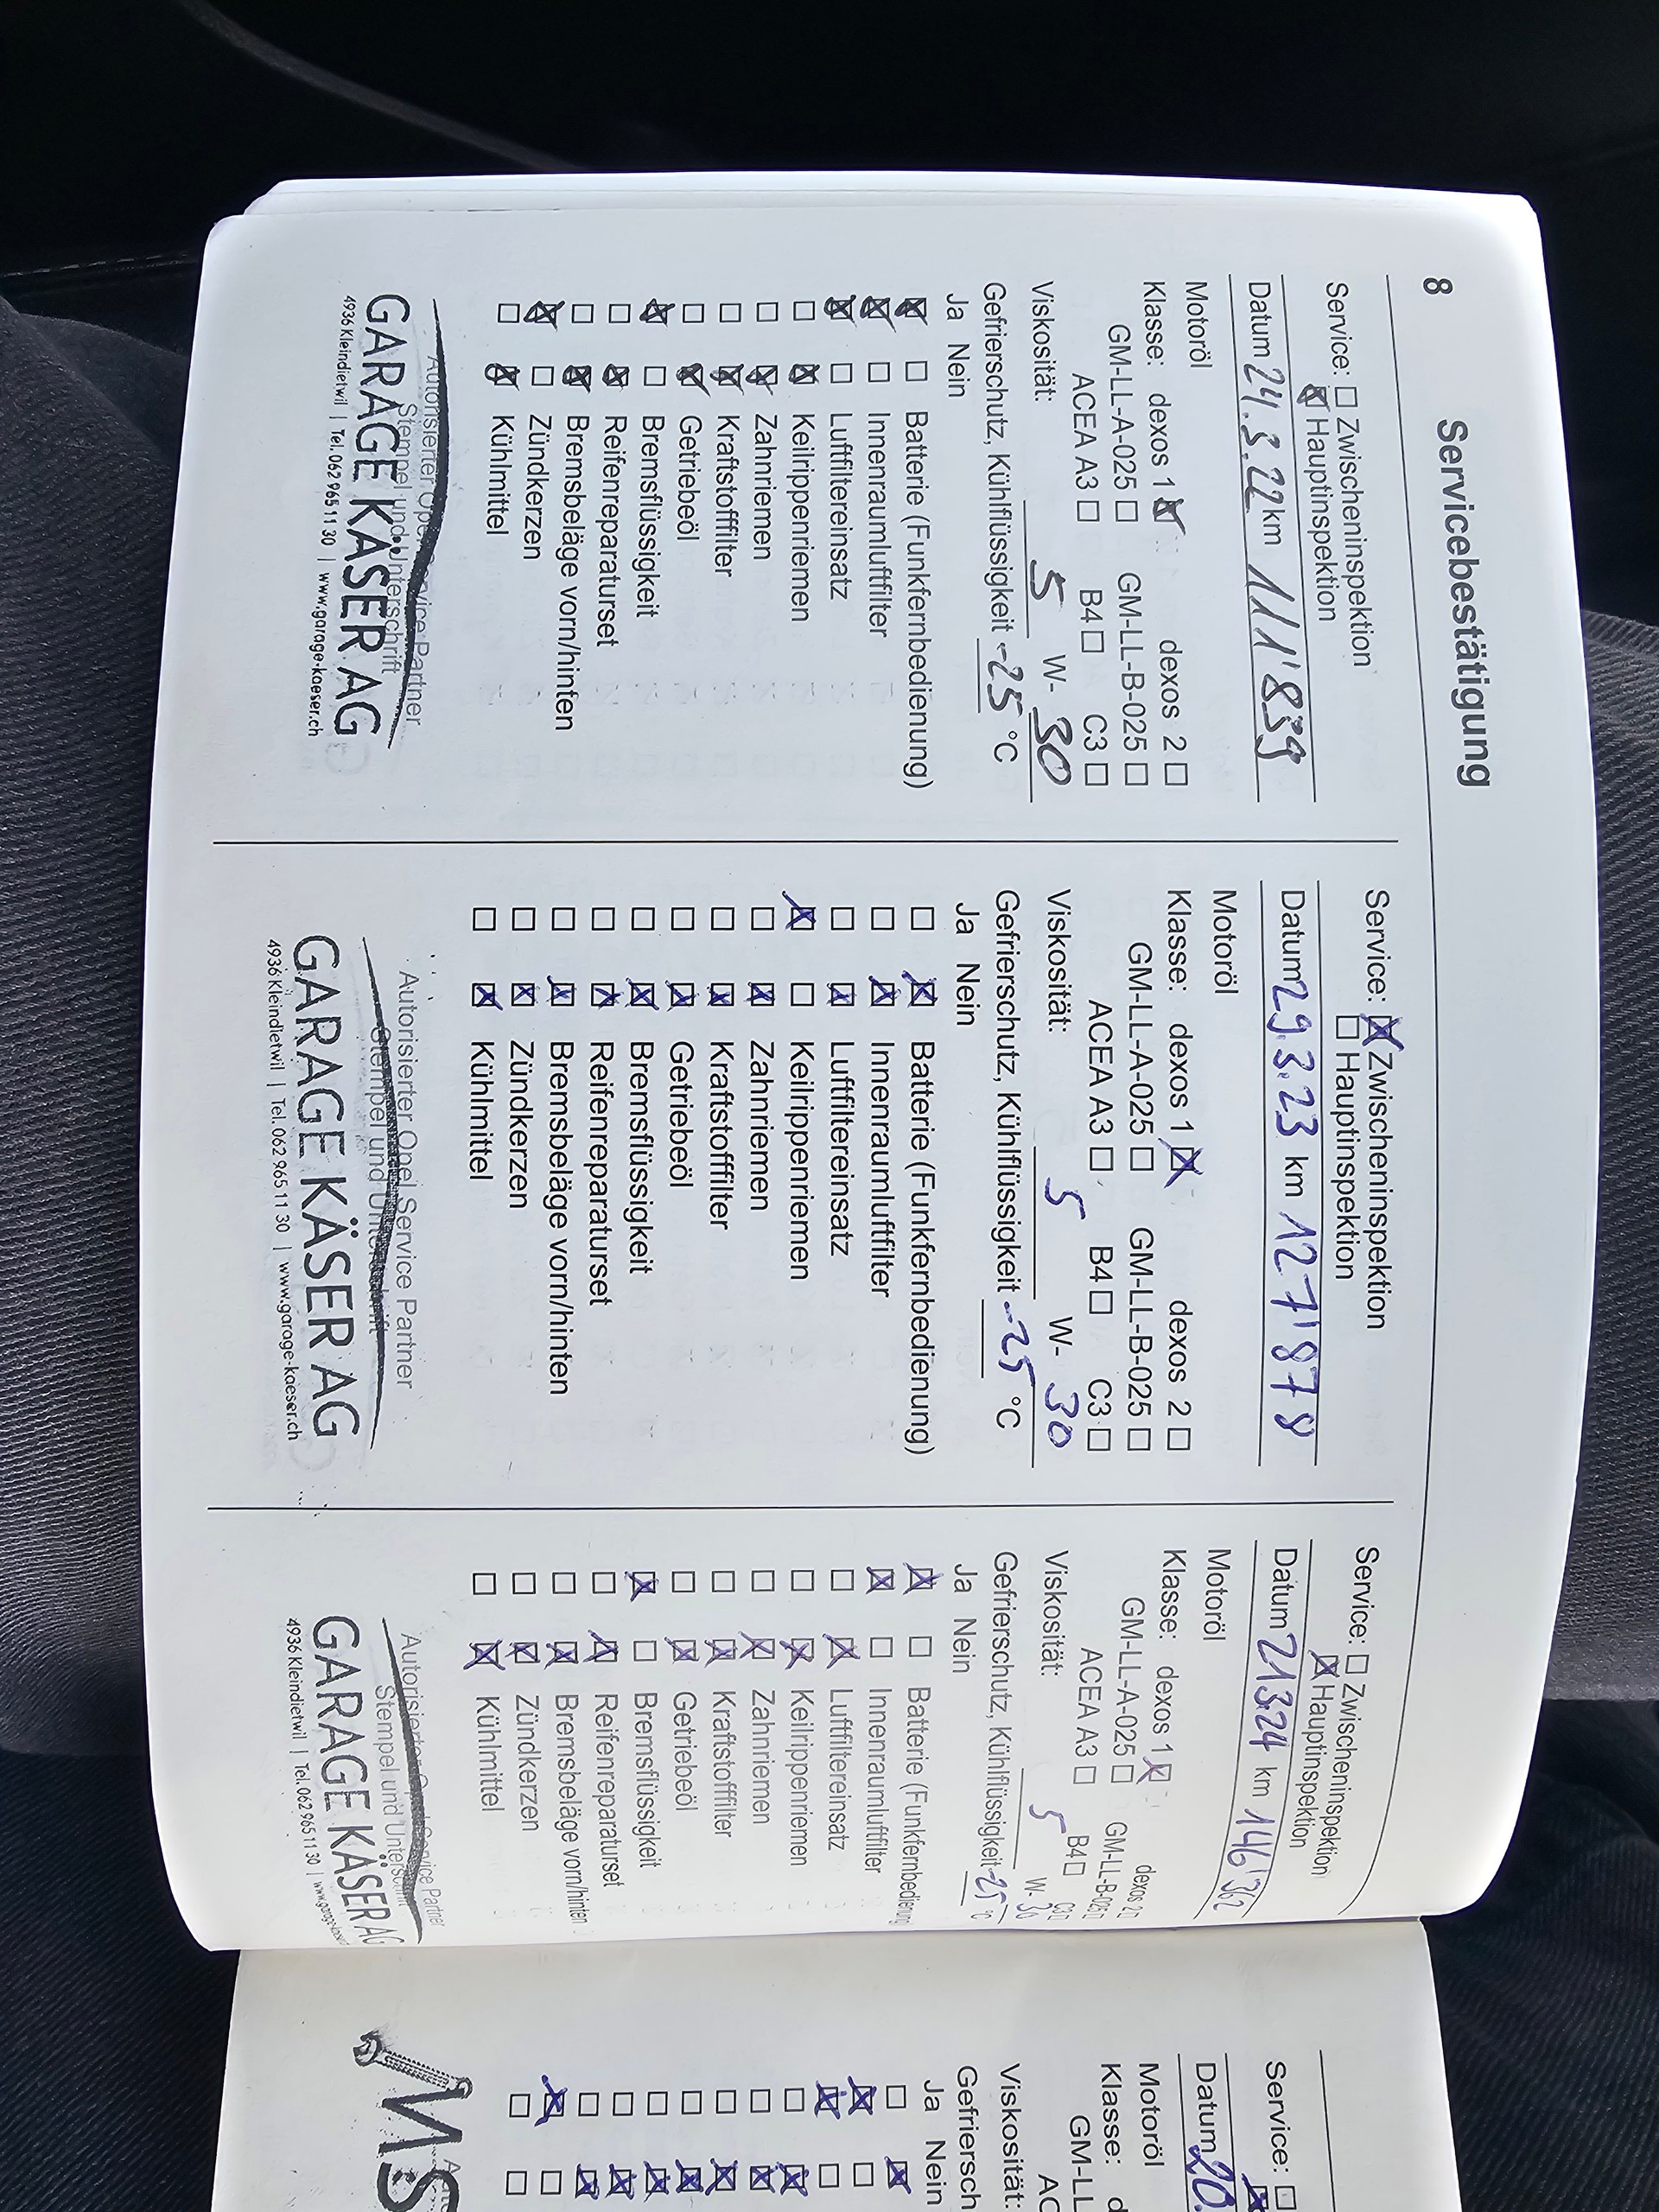 8
Servicebestätigung
Service: ☐ Zwischeninspektion
☒ Hauptinspektion
Datum 24.3.22 km 111'839
Motoröl
Klasse: dexos 1 ☒ dexos 2 ☐
GM-LL-A-025 ☐ GM-LL-B-025 ☐
ACEA A3 ☐ B4 ☐ C3 ☐
Viskosität: 5 W- 30
Gefrierschutz, Kühlflüssigkeit -25 °C
Ja Nein
☒ ☐ Batterie (Funkfernbedienung)
☒ ☐ Innenraumluftfilter
☒ ☐ Luftfiltereinsatz
☐ ☒ Keilrippenriemen
☐ ☒ Zahnriemen
☐ ☒ Kraftstofffilter
☐ ☒ Getriebeöl
☒ ☐ Bremsflüssigkeit
☐ ☒ Reifenreparaturset
☐ ☒ Bremsbeläge vorn/hinten
☒ ☐ Zündkerzen
☐ ☒ Kühlmittel
Autorisierter Opel Service Partner
Stempel und Unterschrift
GARAGE KÄSER AG
4936 Kleindietwil | Tel. 062 965 11 30 | www.garage-kaeser.ch
Service: ☒ Zwischeninspektion
☐ Hauptinspektion
Datum 29.3.23 km 127'878
Motoröl
Klasse: dexos 1 ☒ dexos 2 ☐
GM-LL-A-025 ☐ GM-LL-B-025 ☐
ACEA A3 ☐ B4 ☐ C3 ☐
Viskosität: 5 W- 30
Gefrierschutz, Kühlflüssigkeit -25 °C
Ja Nein
☐ ☒ Batterie (Funkfernbedienung)
☐ ☒ Innenraumluftfilter
☐ ☒ Luftfiltereinsatz
☒ ☐ Keilrippenriemen
☐ ☒ Zahnriemen
☐ ☒ Kraftstofffilter
☐ ☒ Getriebeöl
☐ ☒ Bremsflüssigkeit
☐ ☒ Reifenreparaturset
☐ ☒ Bremsbeläge vorn/hinten
☐ ☒ Zündkerzen
☐ ☒ Kühlmittel
Autorisierter Opel Service Partner
Stempel und Unterschrift
GARAGE KÄSER AG
4936 Kleindietwil | Tel. 062 965 11 30 | www.garage-kaeser.ch
Service: ☐ Zwischeninspektion
☒ Hauptinspektion
Datum 21.3.24 km 146'362
Motoröl
Klasse: dexos 1 ☒ dexos 2 ☐
GM-LL-A-025 ☐ GM-LL-B-025 ☐
ACEA A3 ☐ B4 ☐ C3 ☐
Viskosität: 5 W- 30
Gefrierschutz, Kühlflüssigkeit -25 °C
Ja Nein
☒ ☐ Batterie (Funkfernbedienung
☒ ☐ Innenraumluftfilter
☐ ☒ Luftfiltereinsatz
☐ ☒ Keilrippenriemen
☐ ☒ Zahnriemen
☐ ☒ Kraftstofffilter
☐ ☒ Getriebeöl
☒ ☐ Bremsflüssigkeit
☐ ☒ Reifenreparaturset
☐ ☒ Bremsbeläge vorn/hinten
☐ ☒ Zündkerzen
☐ ☒ Kühlmittel
Autorisierter Opel Service Partner
Stempel und Unterschrift
GARAGE KÄSER AG
4936 Kleindietwil | Tel. 062 965 11 30 | www.garage-kaeser.ch
Service: ☐
☒
Datum 20.
Motoröl
Klasse: d
GM-LL
AC
Viskosität:
Gefriersch
Ja Nein
☐ ☒
☒ ☐
☒ ☐
☐ ☒
☐ ☒
☐ ☒
☐ ☒
☐ ☒
☐ ☒
☐ ☒
☒ ☐
☐ ☐
Auto
MS